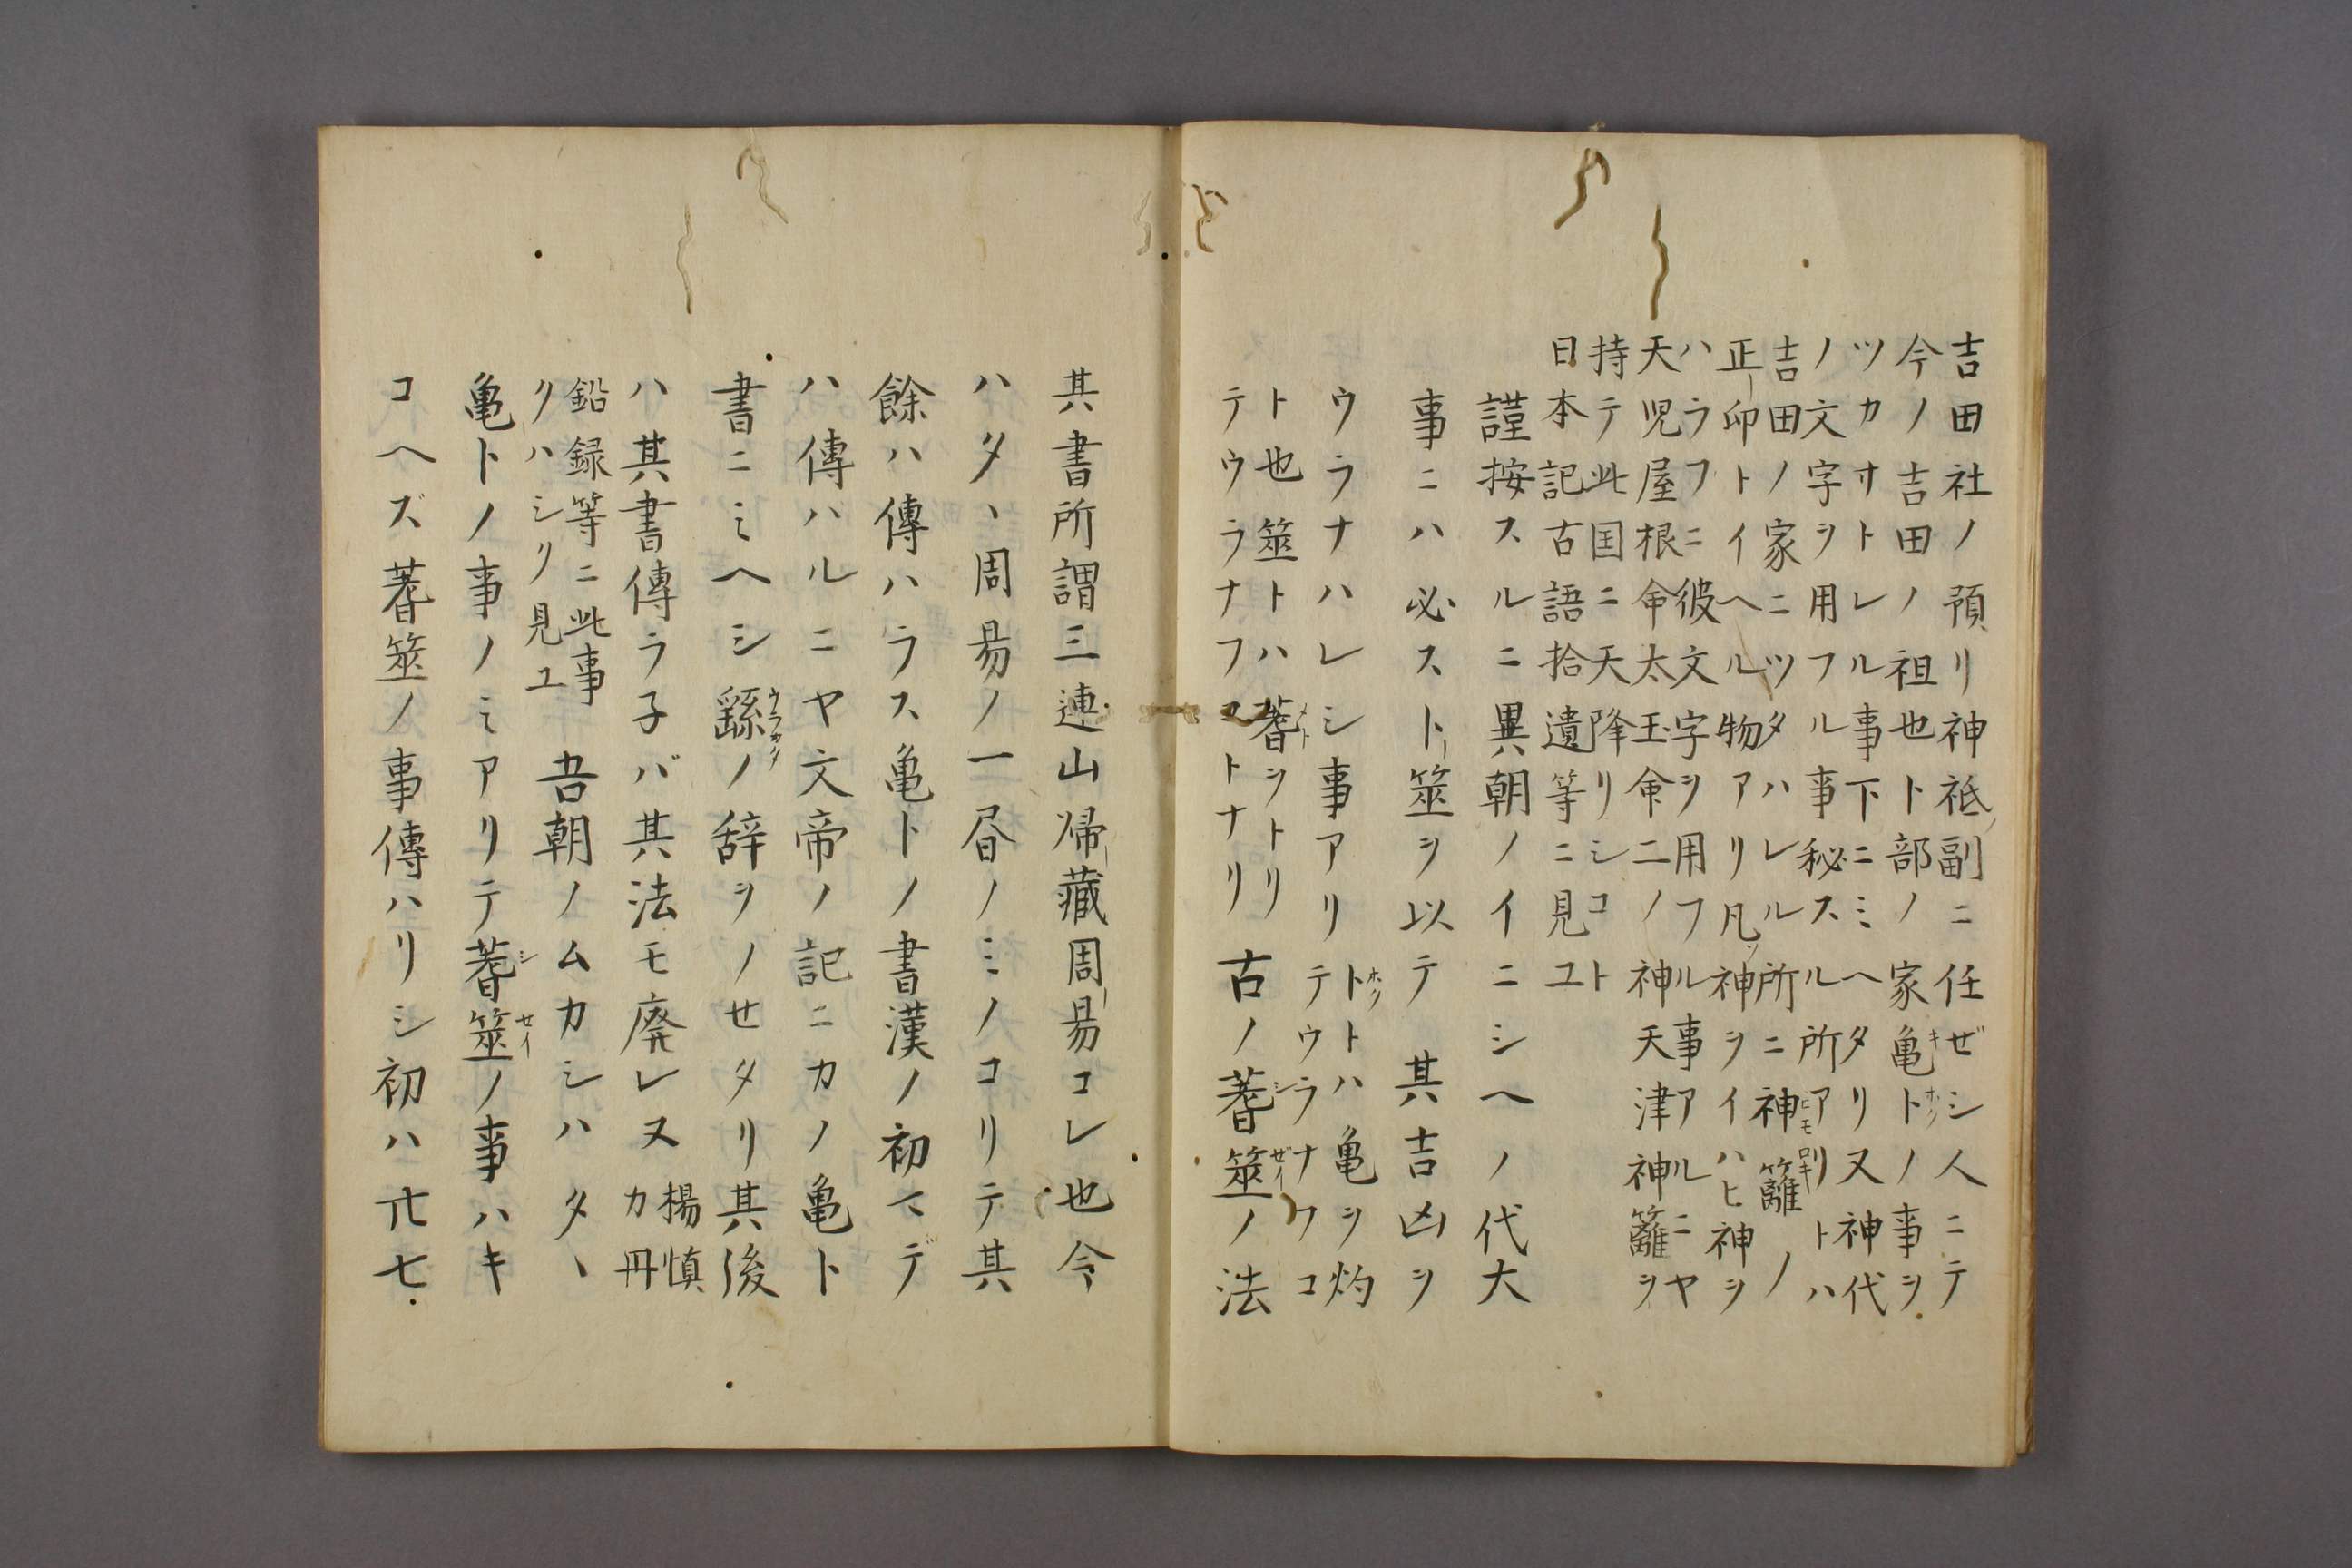 吉田社ノ預リ神祇副ニ任ゼシ人ニテ
今ノ吉田ノ祖也ト部ノ家亀卜ノ事ヲ
ツカサトレル事下ニミヘタリ又神代
ノ文字ヲ用フル事秘スル所アリトハ
吉田ノ家ニツタハレル所ニ神籬ノ
正印トイヘル物アリ凡神ヲイハヒ神ヲ
ハラフニ彼文字ヲ用フル事アルニヤ
天児屋根命太玉命二ノ神天津神籬ヲ
持テ此国ニ天降リシコト
日本記古語拾遺等ニ見ユ
謹按スルニ異朝ノイニシヘノ代大
事ニハ必ス卜筮ヲ以テ其吉凶ヲ
ウラナハレシ事アリ
卜トハ亀ヲ灼
テウラナフコ
ト也筮トハ蓍ヲトリ
テウラナフコトナリ
古ノ蓍筮ノ法
其書所謂三連山帰藏周易コレ也今
ハタヽ周易ノ一昏ノミノコリテ其
餘ハ傳ハラス亀卜ノ書漢ノ初マデ
ハ傳ハルニヤ文帝ノ記ニカノ亀卜
書ニミヘシ繇ノ辞ヲノセタリ其後
ハ其書傳ラ子バ其法モ廃レヌ
楊慎
カ丹
鉛録等ニ此事
クハシリ見ユ
吾朝ノムカシハタヽ
亀卜ノ事ノミアリテ蓍筮ノ事ハキ
コヘズ蓍筮ノ事傳ハリシ初ハ卄七